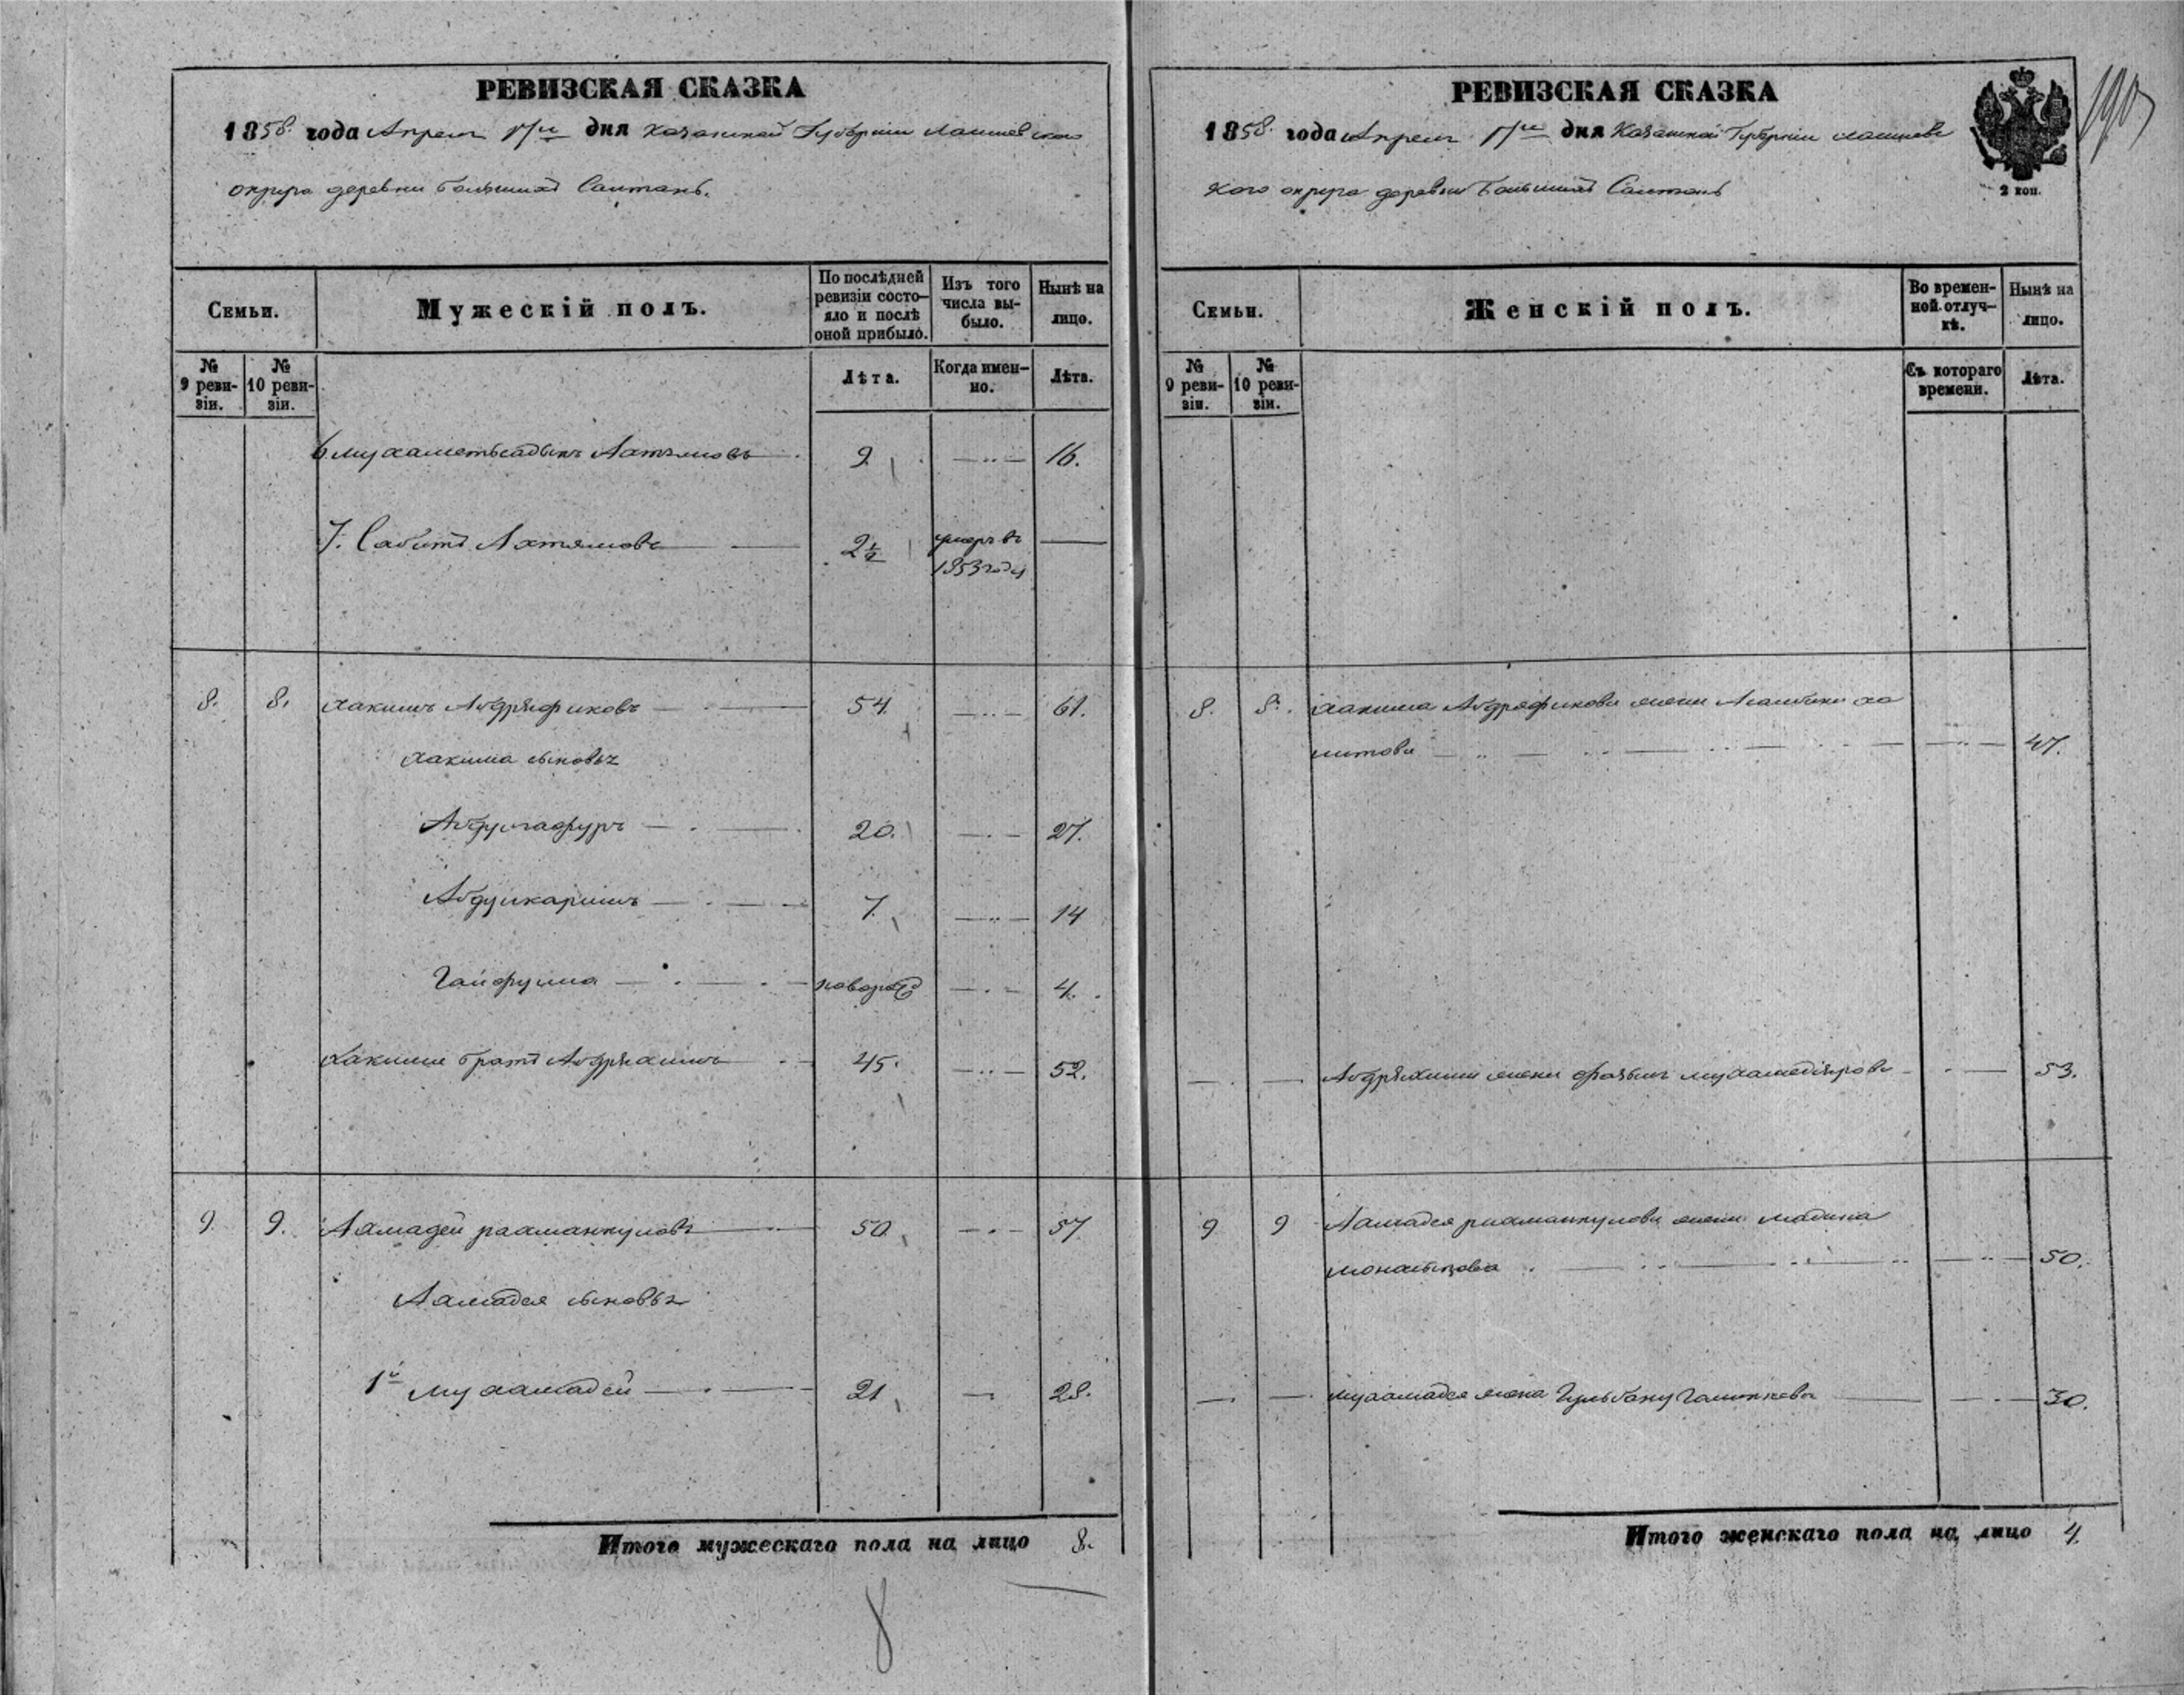 РЕВИЗСКАЯ СКАЗКА
1858. года Апреля дня Казанской Губернiи Лаишевского
округа деревни Большихъ Саитанъ.
Семьи.
Мужескiй полъ.
По послѣдней ревизiи состояло и послѣ оной прибыло.
Изъ того числа выбыло.
Нынѣ на лицо.
№ 9 ревизiи.
№ 10 ревизiи.
Лѣта.
Когда именно.
Лѣта.
6 Мухаметьсадыкъ Ахтямовъ 9. 16.
7. Сабитъ Ахтямовъ 2½ умеръ въ
1853 году
8. 8. Хакимъ Абдряфиковъ 54. 61.
Хакима сыновья
Абдулгафуръ 20. 27.
Абдулкаримъ 7. 14
Гайфулла новорож 4.
Хакима братъ Абдряхимъ 45. 52.
9. 9. Ахмадей рахманкуловъ 50 57
Ахмадея сыновья
1й Мухамадей 21 28.
Итого мужескаго пола на лицо 8.
8
РЕВИЗСКАЯ СКАЗКА
1858. года Апреля дня Казанской Губернiи Лаишевс
кого округа деревни Большихъ Саитанъ
2 коп.
190
Семьи.
Женскiй полъ.
Во временной отлучкѣ.
Нынѣ на лицо.
№ 9 ревизiи.
№ 10 ревизiи.
Съ котораго времени.
Лѣта.
8. 8. Хакима Абдряфикова жена ха
митова 47.
Абдряхима жена Мухамедіярова 53.
9 9 Ахмадея рахманкулова жена Мадина
50.
Мухамадея жена Гульбану 30.
Итого женскаго пола на лицо 4.